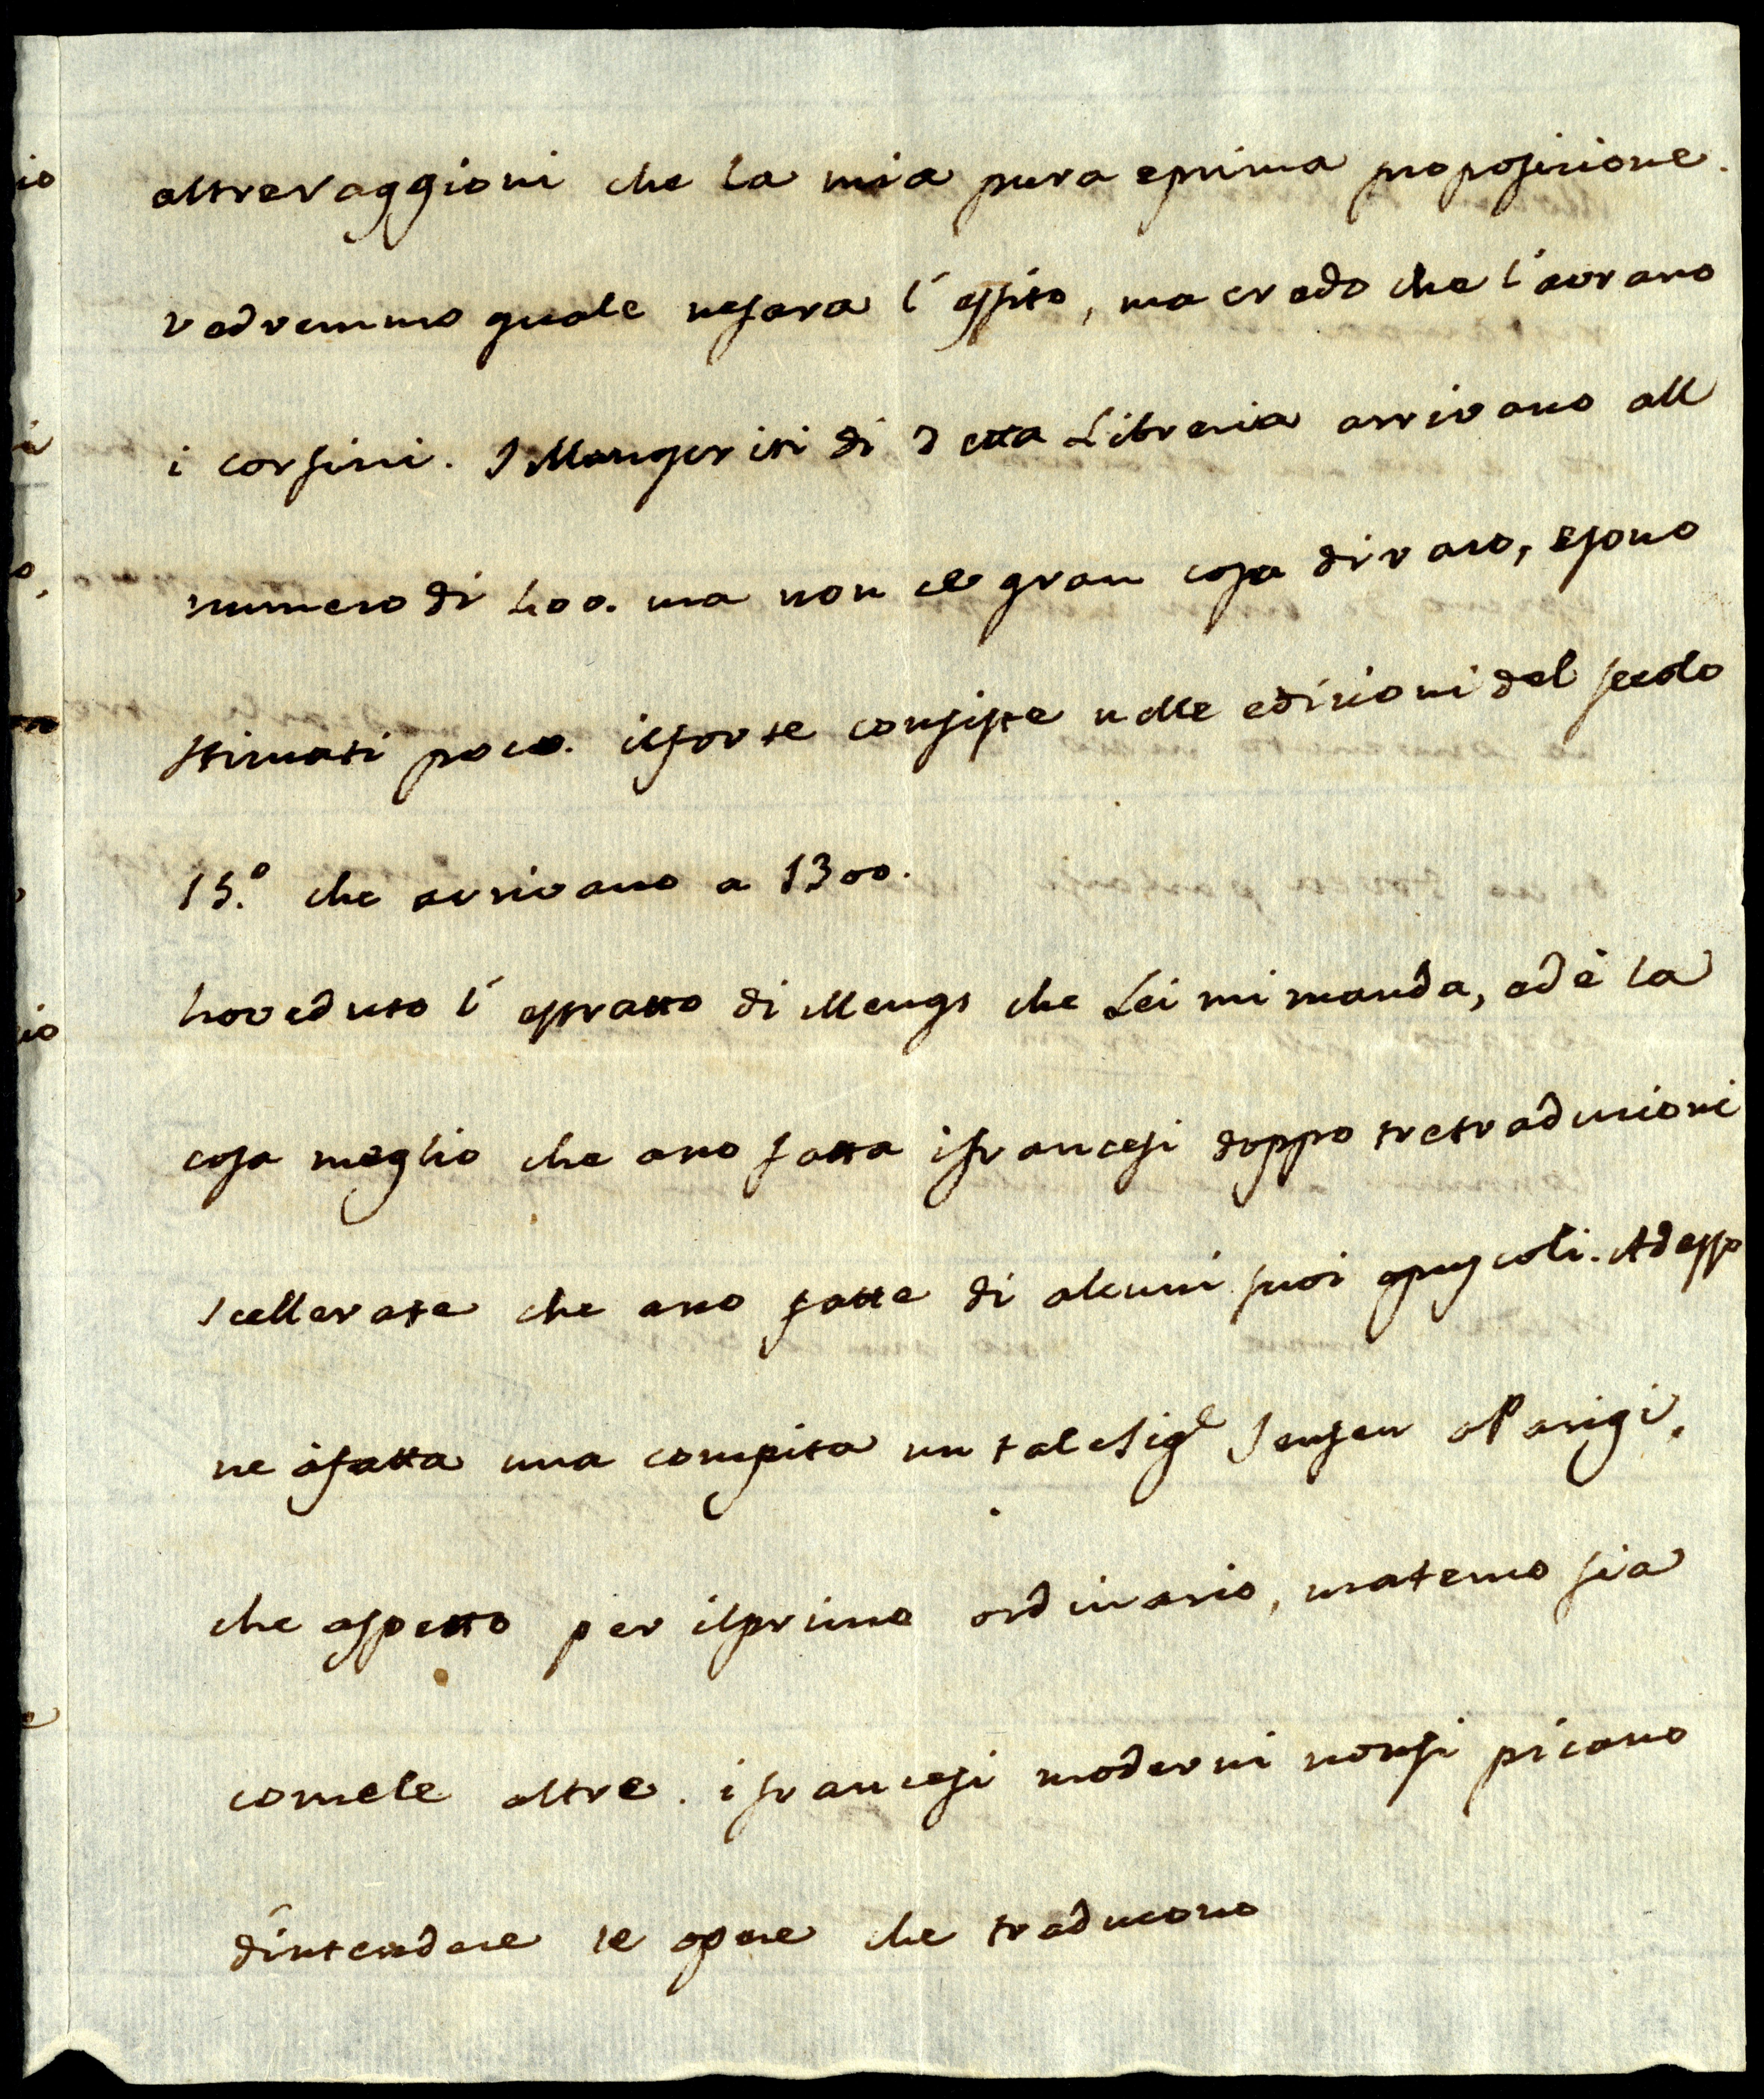 altre raggioni che la mia pura e prima proposizione.
vedremmo quale ne sara l'essito, ma credo che l'avrano
i corsini. I Manuscriti di detta Libreria arrivano all
numero di 400. ma non ce gran cosa di raro, e sono
stimati poco. il forte consiste nelle edizioni del secolo
15.º che arrivano a 1300.
ho veduto l'estratto di Mengs che Lei mi manda, ed è la
cosa meglio che ano fatta i francesi doppo tre traduzioni
scellerate che ano fatte di alcuni suoi opuscoli. Adesso
ne à fatta una compita un tale Sig.e Jensen a Parigi,
che aspetto per il primo ordinario, ma temo sia
come le altre. i francesi moderni non si picano
d'intendere le opere che traducono